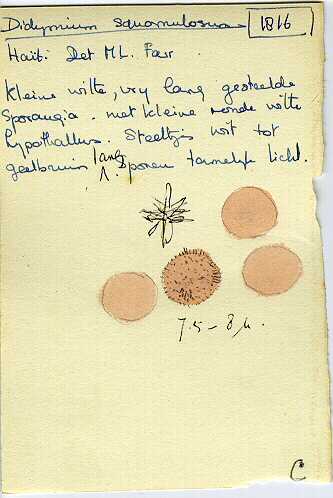 Didymium squamulosum 1816
Haïti. Det M.L. Farr
Kleine witte, vrij lang gesteelde
Sporangia. met kleine ronde witte
hypothallus. Steeltjes wit tot
geelbruin lang. Sporen tamelijk licht.
7.5 - 8 µ.
C